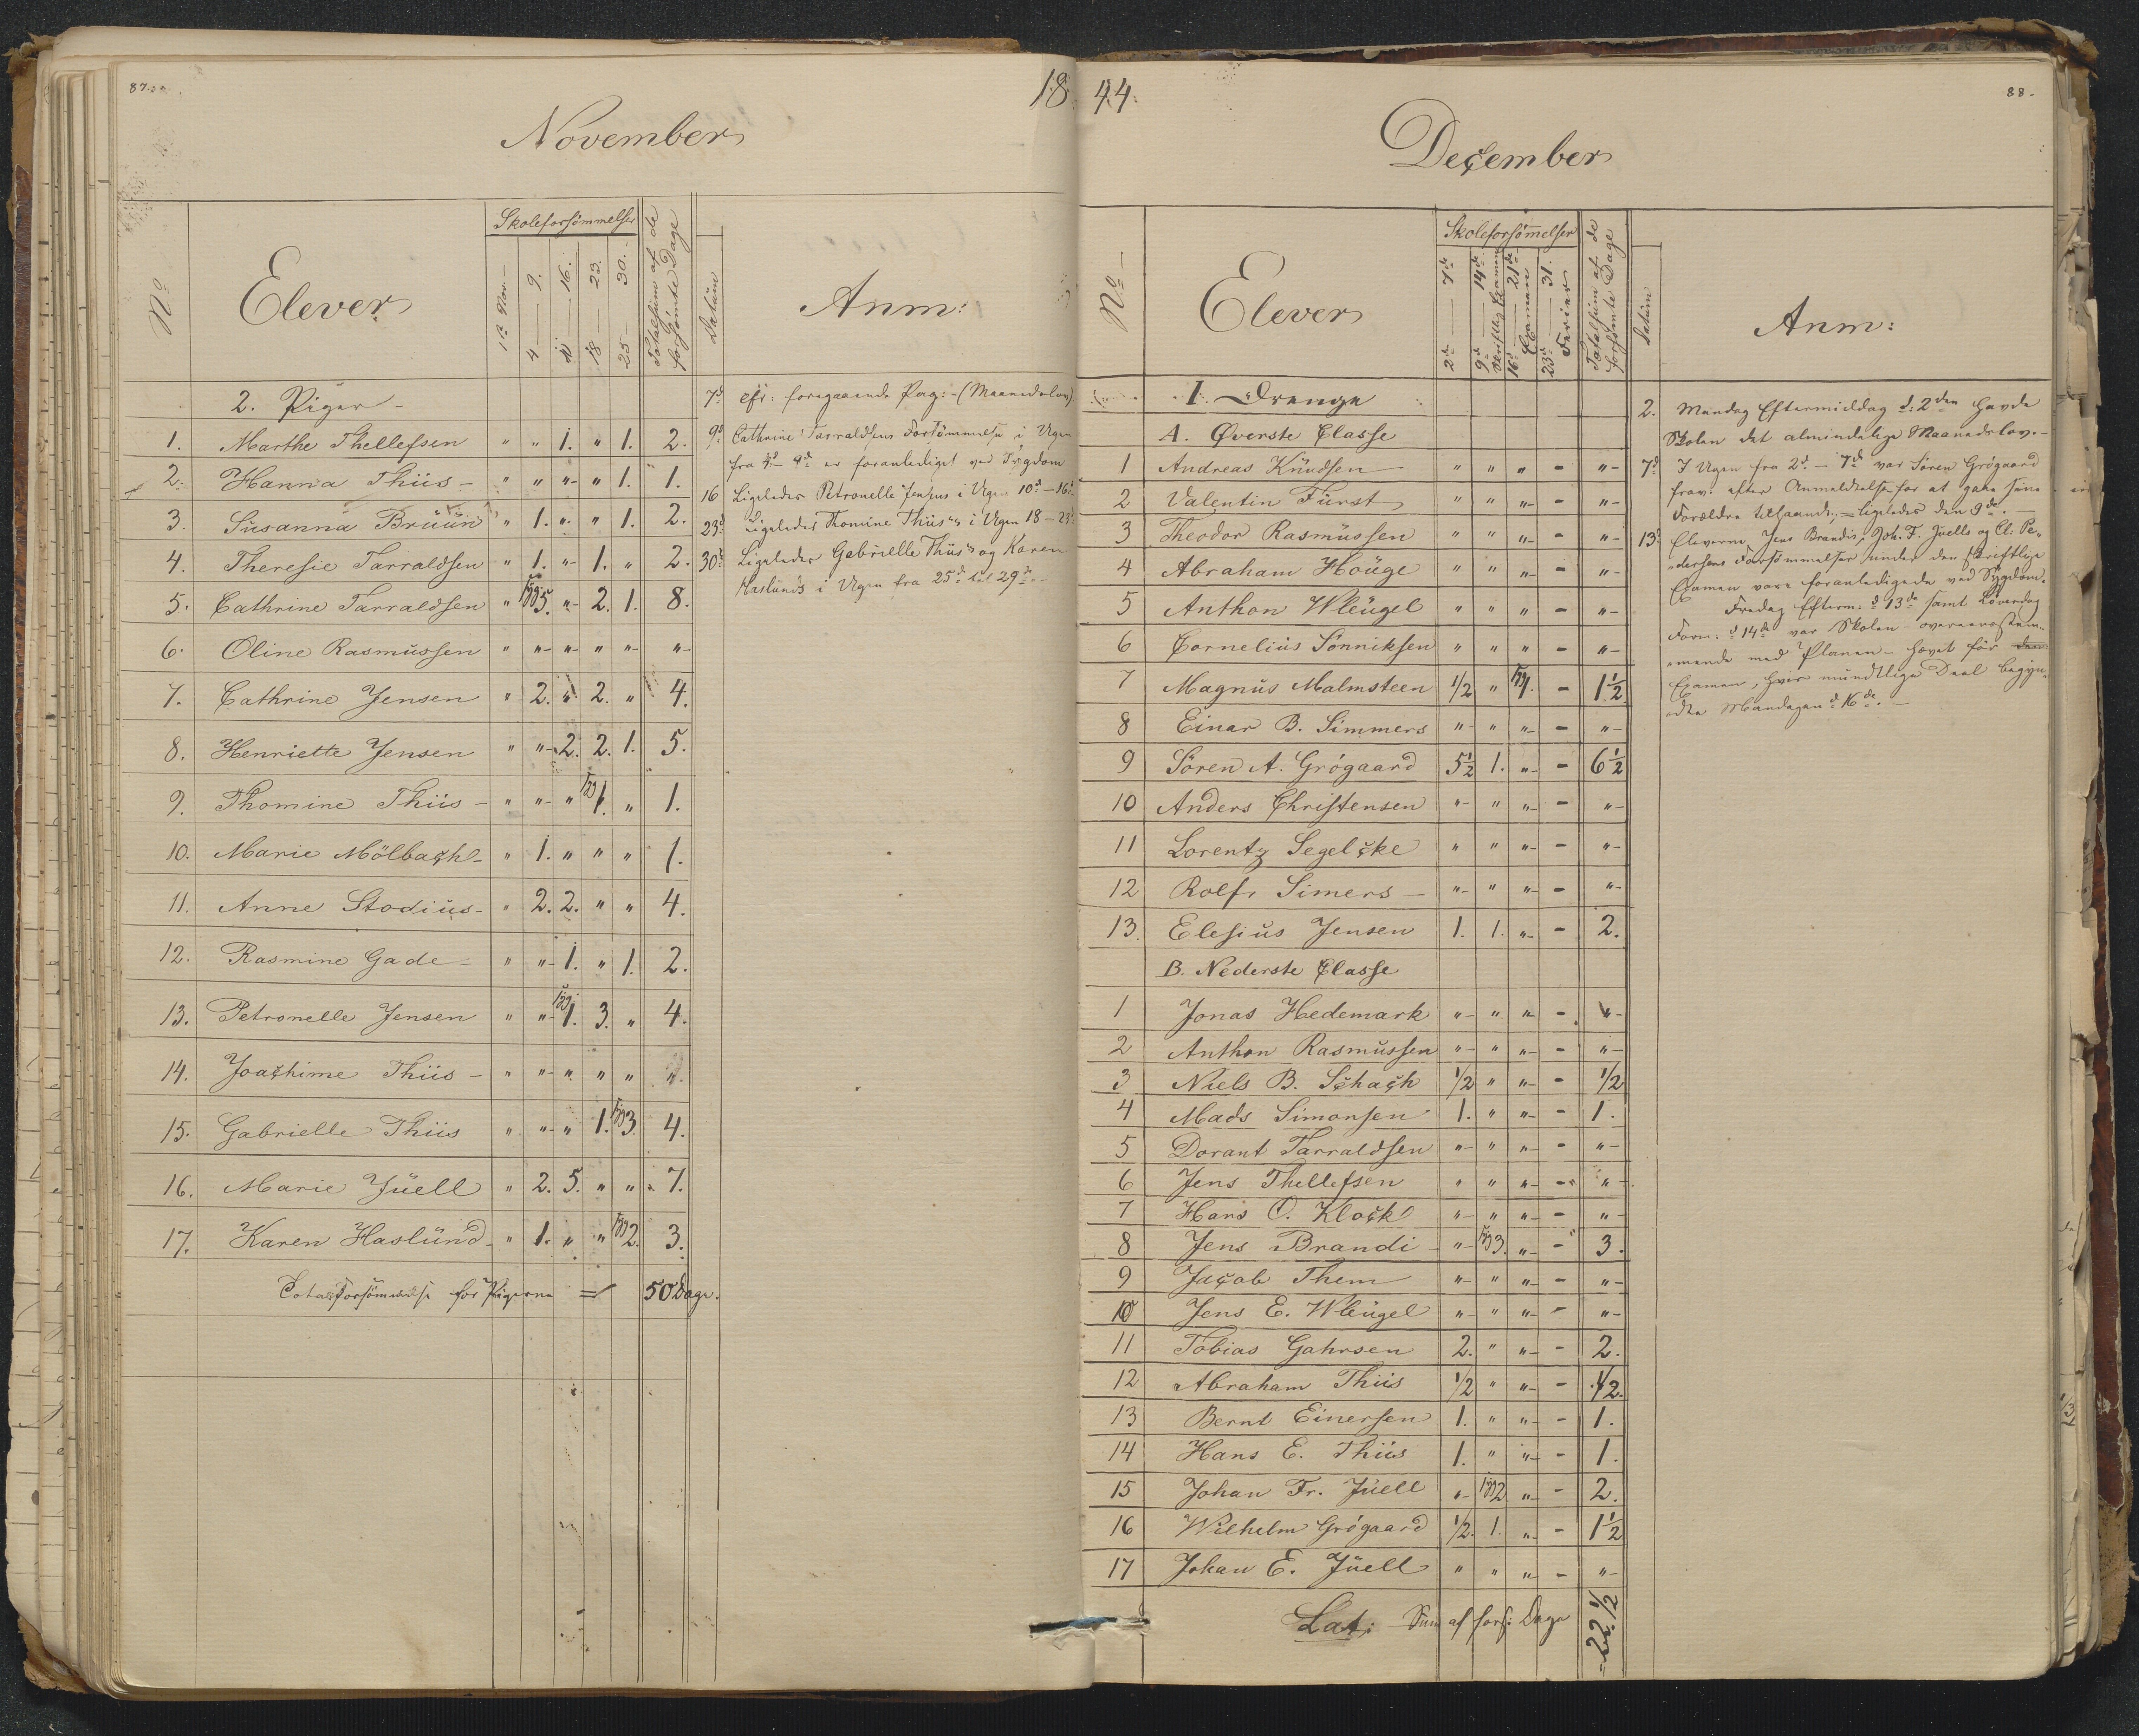 87.
18
November
No
Elever
Skoleforsömmelser
1ste Nov.
4 — 9.
11 — 16.
18 — 23.
25 — 30.
Totalsum af de forsömte Dage
Datum
Anm:
2. Piger
1. Marthe Thellefsen " " 1. " 1. 2.
2. Hanna Thiis " " " " 1. 1.
3. Susanna Brüün " 1. " " 1. 2.
4. Theresie Tarraldsen " 1. " 1. " 2.
5. Cathrine Tarraldsen " syg 5. " 2. 1. 8.
6. Oline Rasmussen " " " " " "
7. Cathrine Jensen " 2. " 2. " 4.
8. Henriette Jensen " " 2. 2. 1. 5.
9. Thomine Thiis " " " syg 1. " 1.
10. Marie Mölbach " 1. " " " 1.
11. Anne Stodius " 2. 2. " " 4.
12. Rasmine Gade " " 1. " 1. 2.
13. Petronelle Jensen " " syg 1. 3. " 4.
14. Joachime Thiis " " " " " "
15. Gabrielle Thiis " " " 1. syg 3. 4.
16. Marie Jüell " 2. 5. " " 7.
17. Karen Haslünd " 1. " " syg 2. 3.
Total Forsömmelse for Pigerne = 50 Dage.
7d cfr: foregaaende Pag: (Maanedslov).
9d Cathrine Tarraldsens Forsömmelse i Ugen
fra 4d – 9d er foranlediget ved Sygdom
16 Ligeledes Petronelle Jensens i Ugen 10d – 16d
23d Ligeledes Thomine Thiis's i Ugen 18 – 23d
30d Ligeledes Gabrielle Thiis's og Karen
Haslunds i Ugen fra 25d til 29d
44.
88.
December
No
Elever
Skoleforsömelser
2d — 7de
9d — 14de skriftlig Examen
16d — 21de Examen
23d — 31. Ferier
Totalsum af de forsömte Dage
Datum
Anm:
1. Drenge
A. Øverste Classe
1 Andreas Knudsen " " " - "
2 Valentin Fürst " " " - "
3 Theodor Rasmüssen " " " - "
4 Abraham Hoüge " " " - "
5 Anthon Wleügel " " " - "
6 Cornelius Sönniksen " " " - "
7 Magnus Malmsteen 1/2 " syg 1. - 1 1/2
8 Einar B. Simmers " " " - "
9 Sören A. Grögaard 5 1/2 1. " - 6 1/2
10 Anders Christensen " " " - "
11 Lorentz Segelcke " " " - "
12 Rolf Simers " " " - "
13. Elesius Jensen 1. 1. " - 2.
B. Nederste Classe
1 Jonas Hedemark " " " - "
2 Anthon Rasmussen " " " - "
3 Niels B. Schach 1/2 " " - 1/2
4 Mads Simonsen 1. " " - 1.
5 Dorant Tarraldsen " " " - "
6 Jens Thellefsen " " " - "
7 Hans O. Klock " " " - "
8 Jens Brandi " syg 3. " - 3.
9 Jacob Them " " " - "
10 Jens E. Wleügel " " " - "
11 Tobias Gahrsen 2. " " - 2.
12 Abraham Thiis 1/2 " " - 1/2.
13 Bernt Einersen 1. " " - 1.
14 Hans E. Thiis 1. " " - 1.
15 Johan Fr. Jüell " syg 2 " - 2.
16 Wilhelm Grögaard 1/2. 1. " - 1 1/2
17 Johan E. Jüell " " " - "
Lat: Sum af fors: Dage = 22 1/2
2. Mandag Eftermiddag d: 2den havde
Skolen det almindelige Maanedslov.
7d I Ugen fra 2d – 7d var Sören Grögaard
frav: efter Anmeldelse for at gaae sine
Forældre tilhaande, – ligeledes den 9de.
13d Eleverne Jens Brandis, Joh. F. Juells og Cl: Pe-
dersens Forsömmelser under den skriftlige
Examen vare foranledigede ved Sygdom.
Fredag Efterm: d 13de samt Löverdag
Form: d 14de var Skolen – overensstem-
mende med Planen – hævet för den
Examen, hvis mundtlige Deel begyn-
dte Mandagen d 16de.